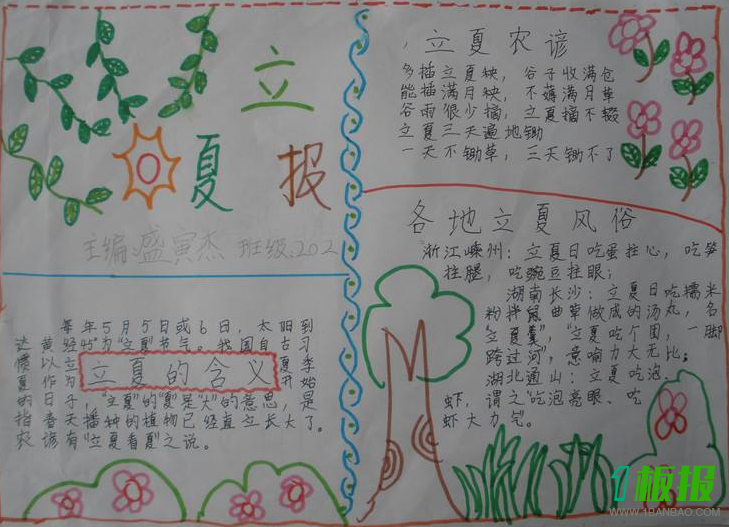 立
夏
报
主编:盛寅杰 班级:202
每年5月5日或6日,太阳到
达黄经45°为“立夏”节气。我国自古习
惯以立 夏
立夏的含义
夏作为 季
的日子,“立夏”的“夏”是“大”的意思,是
指春天播种的植物已经直立长大了。
农谚有“立夏看夏”之说。
立夏农谚
多插立夏秧,谷子收满仓
能插满月秧,不薅满月草
谷雨很少摘,立夏摘不辍
立夏三天遍地锄
一天不锄草,三天锄不了
各地立夏风俗
浙江嵊州:立夏日吃蛋拄心,吃笋
拄腿,吃豌豆拄眼;
湖南长沙:立夏日吃糯米
粉拌鼠曲草做成的汤丸,名
“立夏羹”,“立夏吃个团,一脚
跨过河”,意响力大无比;
湖北通山:立夏吃泡、
虾,谓之“吃泡亮眼、吃
虾大力气。
1板报
WWW.1BANBAO.COM